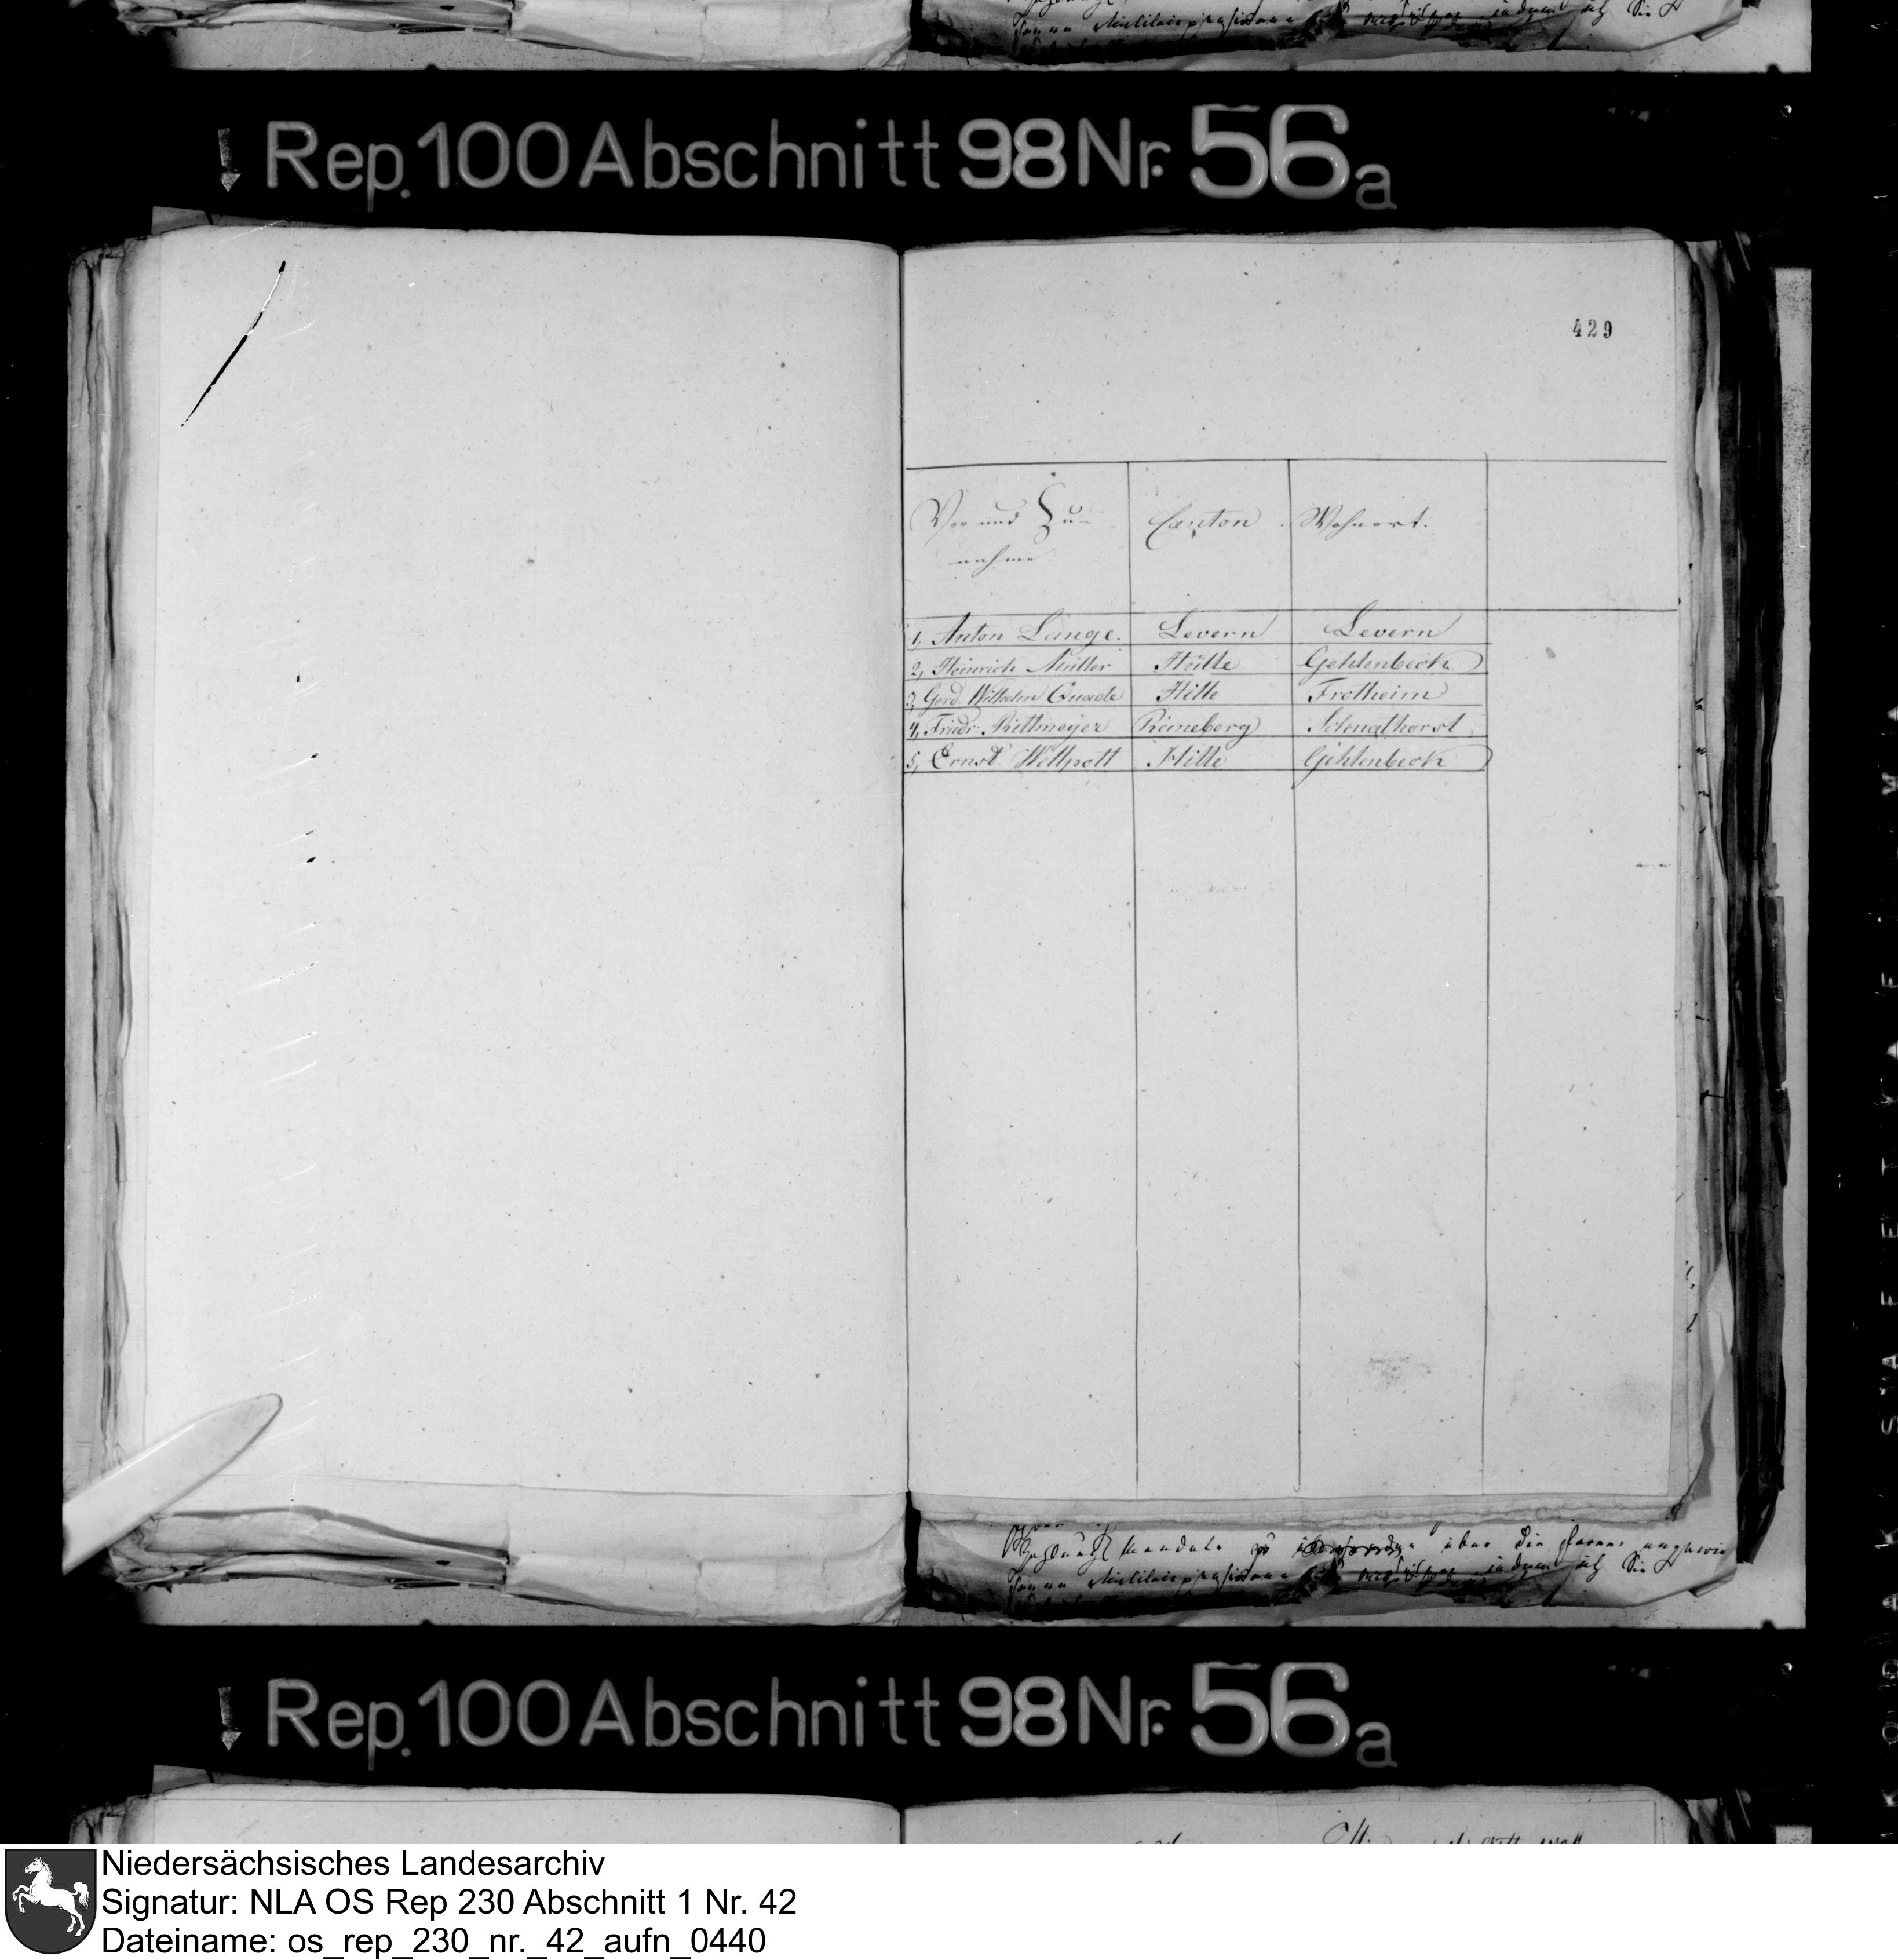 Rep. 100 Abschnitt 98 Nr. 56a
429
Vor und Zu-
nahme
Canton
Wohnort.
1, Anton Lange. Levern Levern
2, Heinrich Müller Hille Gehlenbeck
3, Gerd. Wilhelm Quade Hille Frotheim
4, Friedr. Rittmeyer Reineberg Schnathorst
5, Ernst Wellpott Hille Gehlenbeck
über die
die
Rep. 100 Abschnitt 98 Nr. 56a
Niedersächsisches Landesarchiv
Signatur: NLA OS Rep 230 Abschnitt 1 Nr. 42
Dateiname: os_rep_230_nr._42_aufn_0440